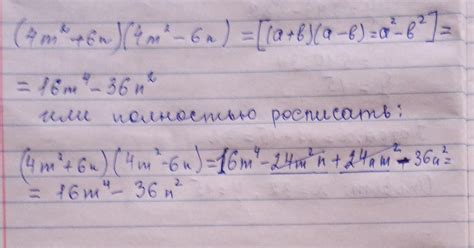 (4m²+6n)(4m²-6n) =[(a+b)(a-b)=a²-b²]=
=16m⁴-36n²
или полностью росписать:
(4m²+6n)(4m²-6n)=16m⁴-24m²n+24nm²-36n²=
= 16m⁴- 36n²